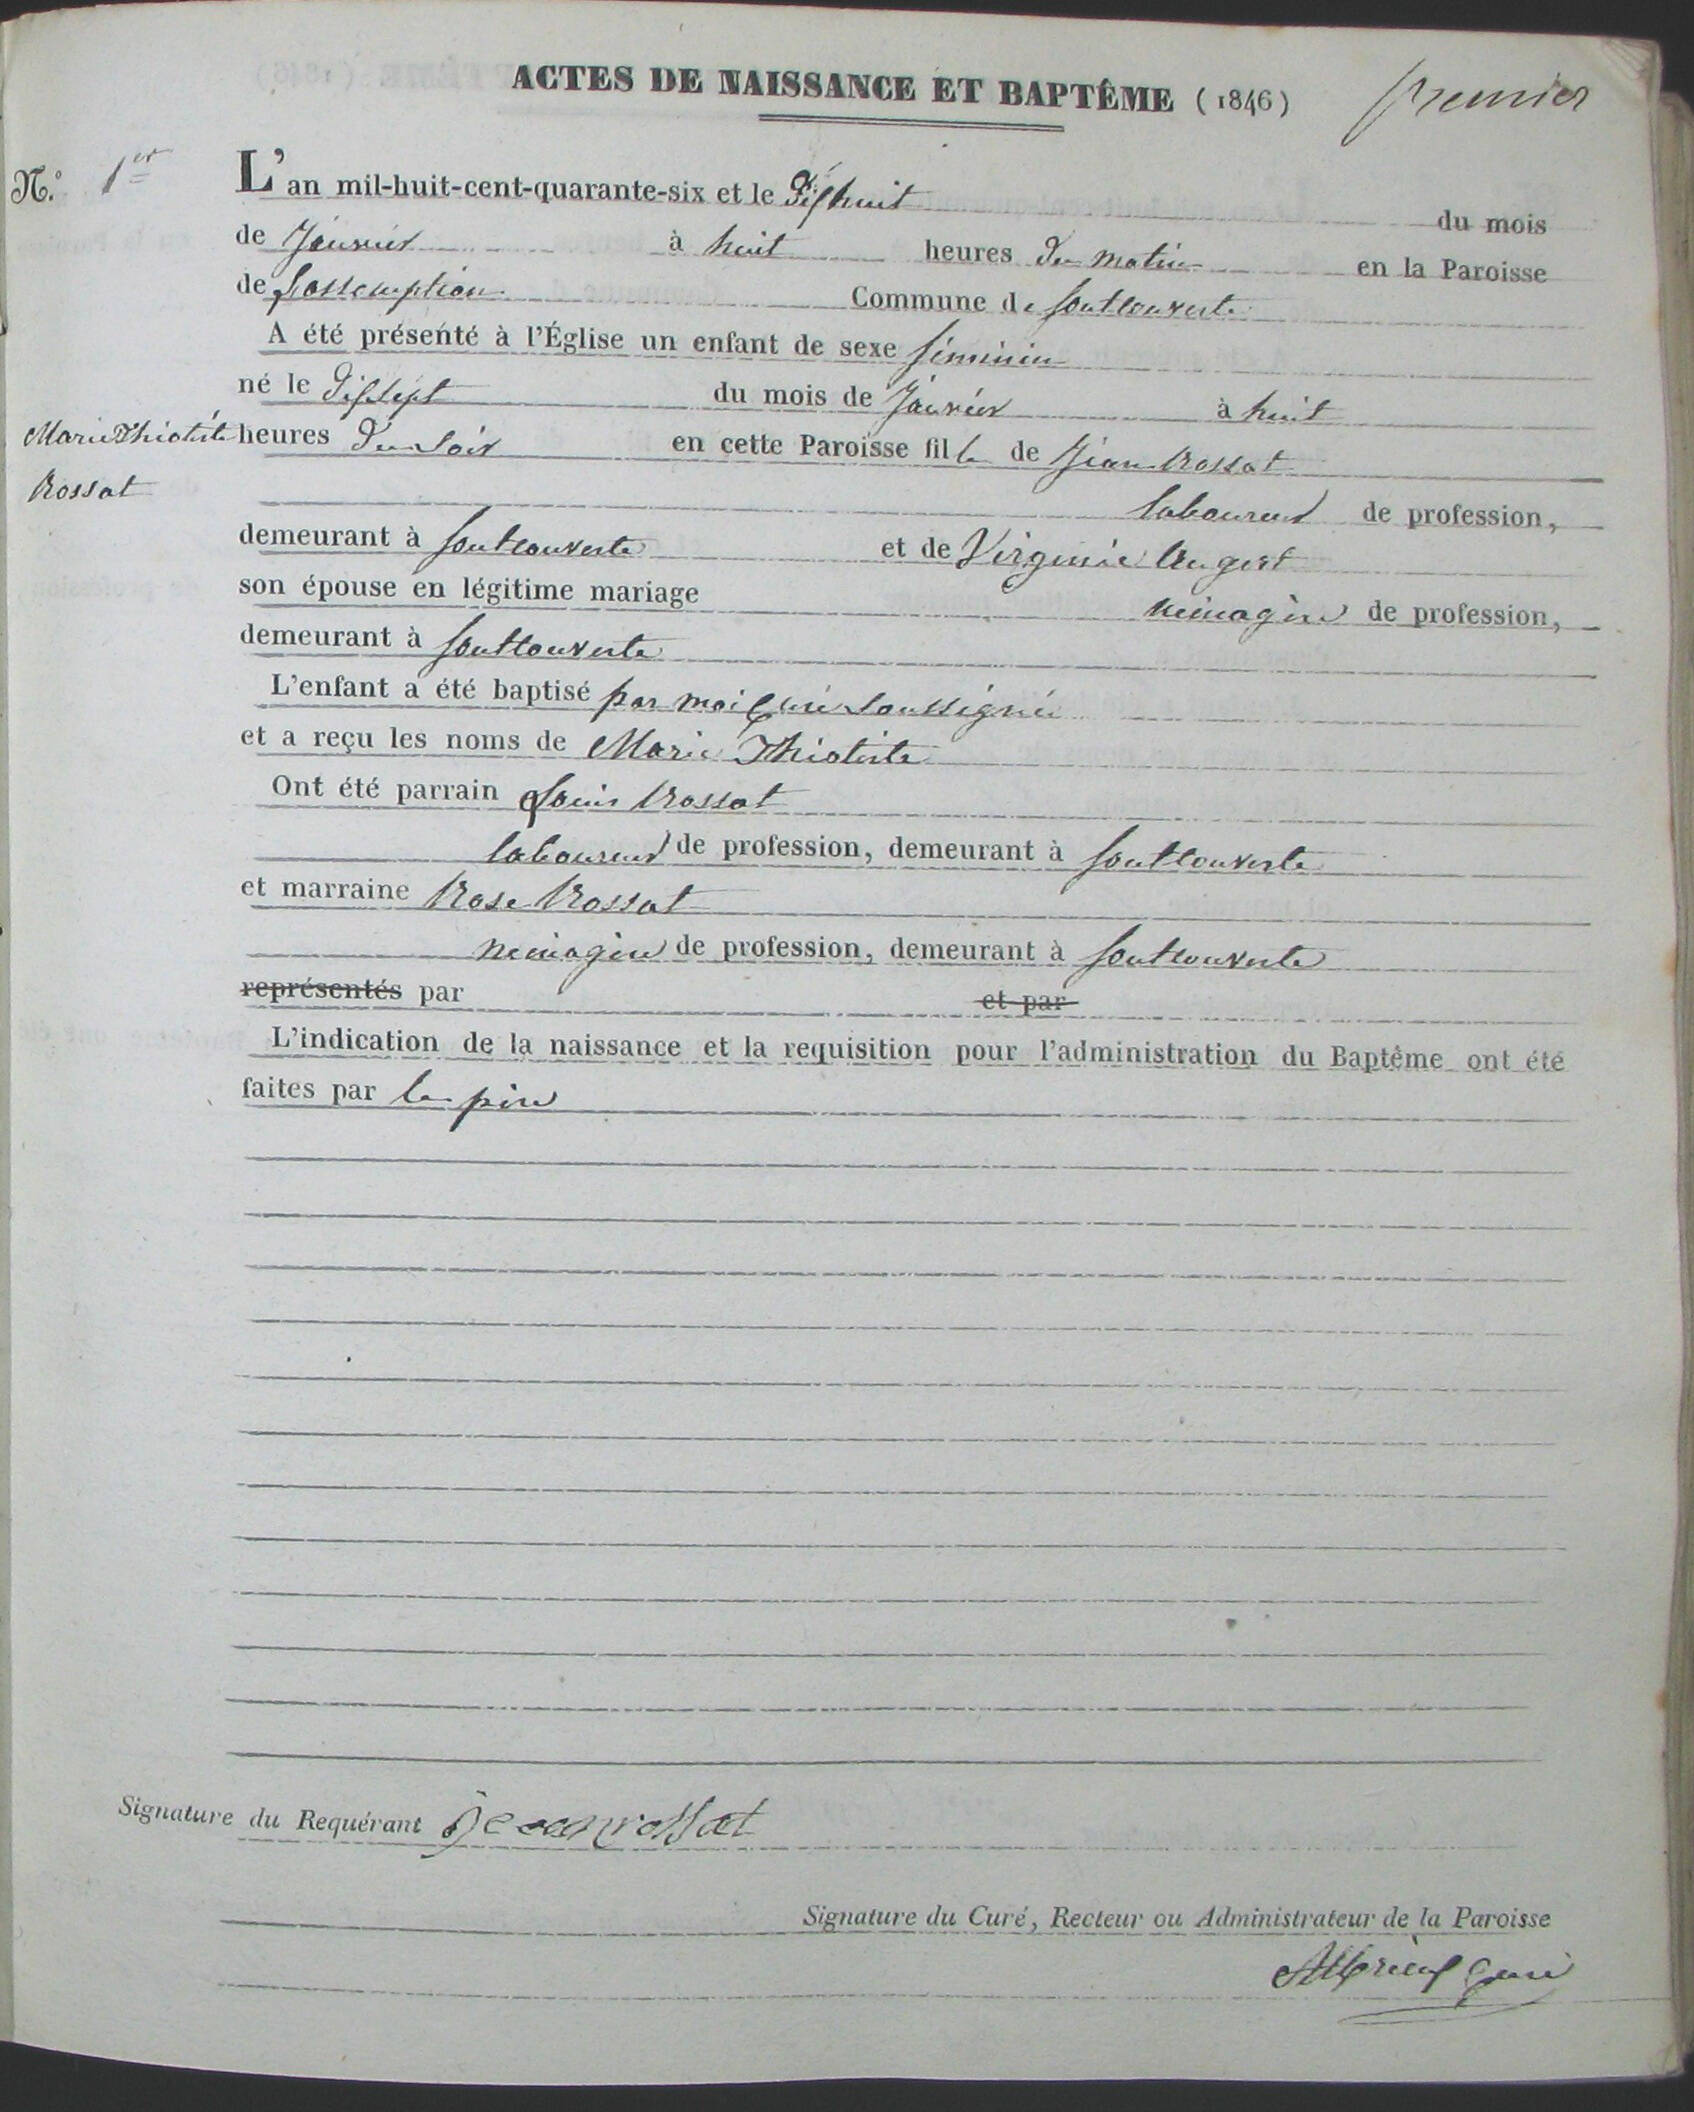 ACTES DE NAISSANCE ET BAPTÊME (1846) premier
N.° 1er
L'an mil-huit-cent-quarante-six et le dixhuit du mois
de Janvier à huit heures du matin en la Paroisse
de Lassomption Commune de Fontcouverte
A été présenté à l'Église un enfant de sexe féminin
né le dixsept du mois de Janvier à huit
heures du soir en cette Paroisse fille de Jean Rossat
Marie Thiotiste
Rossat
laboureur de profession,
demeurant à fontcouverte et de Virginie Augert
son épouse en légitime mariage ménagère de profession,
demeurant à fontcouverte
L'enfant a été baptisé par moi Curé soussigné
et a reçu les noms de Marie Thiotiste
Ont été parrain Louis Rossat
laboureur de profession, demeurant à fontcouverte
et marraine Rose Rossat
ménagère de profession, demeurant à fontcouverte
représentés par et par
L'indication de la naissance et la requisition pour l'administration du Baptême ont été
faites par le père
Signature du Requérant Jean rossat
Signature du Curé, Recteur ou Administrateur de la Paroisse
Curé